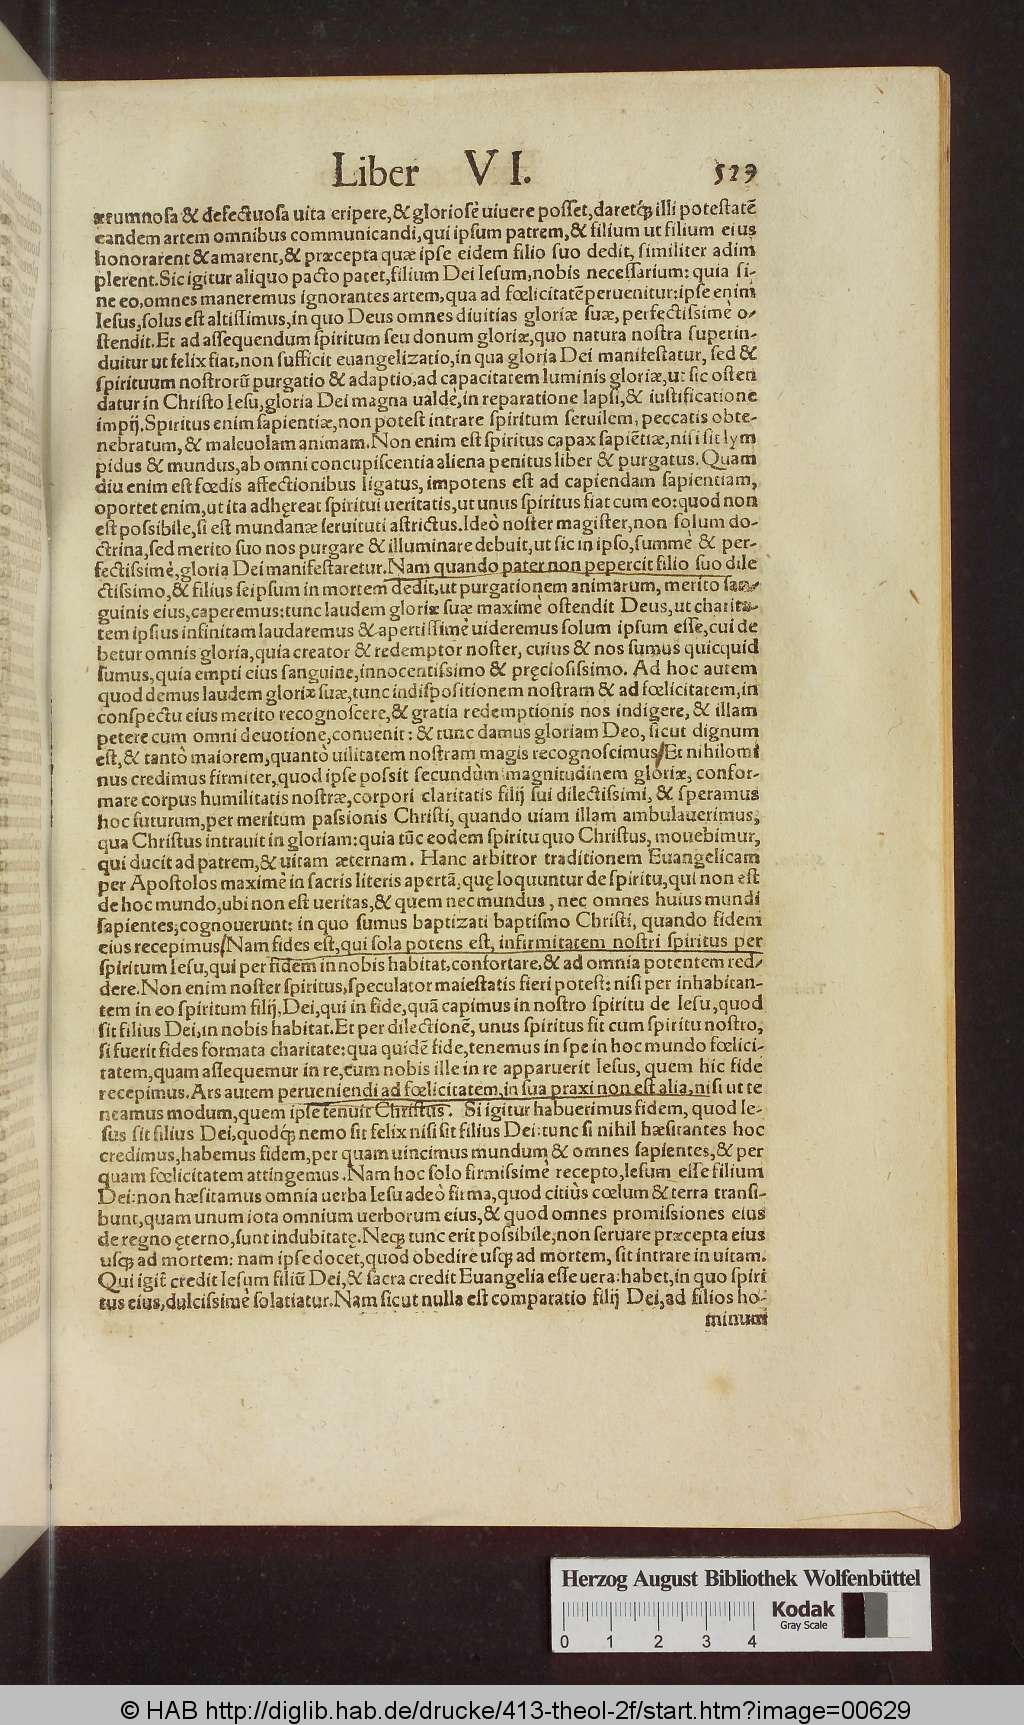 Liber VI. 529
ærumnosa & defectuosa uita eripere, & gloriosè uiuere posset, daretq́; illi potestatē
eandem artem omnibus communicandi, qui ipsum patrem, & filium ut filium eius
honorarent & amarent, & præcepta quæ ipse eidem filio suo dedit, similiter adim
plerent. Sic igitur aliquo pacto patet, filium Dei Iesum, nobis necessarium: quia si-
ne eo, omnes maneremus ignorantes artem, qua ad fœlicitatē peruenitur: ipse enim
Iesus, solus est altissimus, in quo Deus omnes diuitias gloriæ suæ, perfectissimè o-
stendit. Et ad assequendum spiritum seu donum gloriæ, quo natura nostra superin-
duitur ut felix fiat, non sufficit euangelizatio, in qua gloria Dei manifestatur, sed &
spirituum nostrorũ purgatio & adaptio, ad capacitatem luminis gloriæ, ut sic osten
datur in Christo Iesu, gloria Dei magna ualde, in reparatione lapsi, & iustificatione
impij. Spiritus enim sapientiæ, non potest intrare spiritum seruilem, peccatis obte-
nebratum, & maleuolam animam. Non enim est spiritus capax sapiētiæ, nisi sit lym
pidus & mundus, ab omni concupiscentia aliena penitus liber & purgatus. Quam
diu enim est fœdis affectionibus ligatus, impotens est ad capiendam sapientiam,
oportet enim, ut ita adhęreat spiritui ueritatis, ut unus spiritus fiat cum eo: quod non
est possibile, si est mundanæ seruituti astrictus. Ideò noster magister, non solum do-
ctrina, sed merito suo nos purgare & illuminare debuit, ut sic in ipso, summè & per-
fectissimè, gloria Dei manifestaretur. Nam quando pater non pepercit filio suo dile
ctissimo, & filius seipsum in mortem dedit, ut purgationem animarum, merito san-
guinis eius, caperemus: tunc laudem gloriæ suæ maximè ostendit Deus, ut charita-
tem ipsius infinitam laudaremus & apertissimè uideremus solum ipsum esse, cui de
betur omnis gloria, quia creator & redemptor noster, cuius & nos sumus quicquid
sumus, quia empti eius sanguine, innocentissimo & pręciosissimo. Ad hoc autem
quod demus laudem gloriæ suæ, tunc indispositionem nostram & ad fœlicitatem, in
conspectu eius merito recognoscere, & gratia redemptionis nos indigere, & illam
petere cum omni deuotione, conuenit: & tunc damus gloriam Deo, sicut dignum
est, & tantò maiorem, quantò uilitatem nostram magis recognoscimus. Et nihilomi
nus credimus firmiter, quod ipse possit secundùm magnitudinem gloriæ, confor-
mare corpus humilitatis nostræ, corpori claritatis filij sui dilectissimi, & speramus
hoc futurum, per meritum passionis Christi, quando uiam illam ambulauerimus,
qua Christus intrauit in gloriam: quia tũc eodem spiritu quo Christus, mouebimur,
qui ducit ad patrem, & uitam æternam. Hanc arbitror traditionem Euangelicam
per Apostolos maximè in sacris literis apertã, quę loquuntur de spiritu, qui non est
de hoc mundo, ubi non est ueritas, & quem nec mundus, nec omnes huius mundi
sapientes, cognouerunt: in quo sumus baptizati baptismo Christi, quando fidem
eius recepimus. Nam fides est, qui sola potens est, infirmitatem nostri spiritus per
spiritum Iesu, qui per fidem in nobis habitat, confortare, & ad omnia potentem red-
dere. Non enim noster spiritus, speculator maiestatis fieri potest: nisi per inhabitan-
tem in eo spiritum filij, Dei, qui in fide, quã capimus in nostro spiritu de Iesu, quod
sit filius Dei, in nobis habitat. Et per dilectionē, unus spiritus fit cum spiritu nostro,
si fuerit fides formata charitate: qua quidē fide, tenemus in spe in hoc mundo fœlici-
tatem, quam assequemur in re, cum nobis ille in re apparuerit Iesus, quem hic fide
recepimus. Ars autem perueniendi ad fœlicitatem, in sua praxi non est alia, nisi ut te
neamus modum, quem ipse tenuit Christus. Si igitur habuerimus fidem, quod Ie-
sus sit filius Dei, quodq́; nemo sit felix nisi sit filius Dei: tunc si nihil hæsitantes hoc
credimus, habemus fidem, per quam uincimus mundum & omnes sapientes, & per
quam fœlicitatem attingemus. Nam hoc solo firmissimè recepto, Iesum esse filium
Dei: non hæsitamus omnia uerba Iesu adeò firma, quod citiùs cœlum & terra transi-
bunt, quam unum iota omnium uerborum eius, & quod omnes promissiones eius
de regno ęterno, sunt indubitatę. Neq; tunc erit possibile, non seruare præcepta eius
usq; ad mortem: nam ipse docet, quod obedire usq; ad mortem, sit intrare in uitam.
Qui igit̃ credit Iesum filiũ Dei, & sacra credit Euangelia esse uera: habet, in quo spiri
tus eius, dulcissimè solatiatur. Nam sicut nulla est comparatio filij Dei, ad filios ho-
minum
Herzog August Bibliothek Wolfenbüttel
Kodak
Gray Scale
0 1 2 3 4
© HAB http://diglib.hab.de/drucke/413-theol-2f/start.htm?image=00629